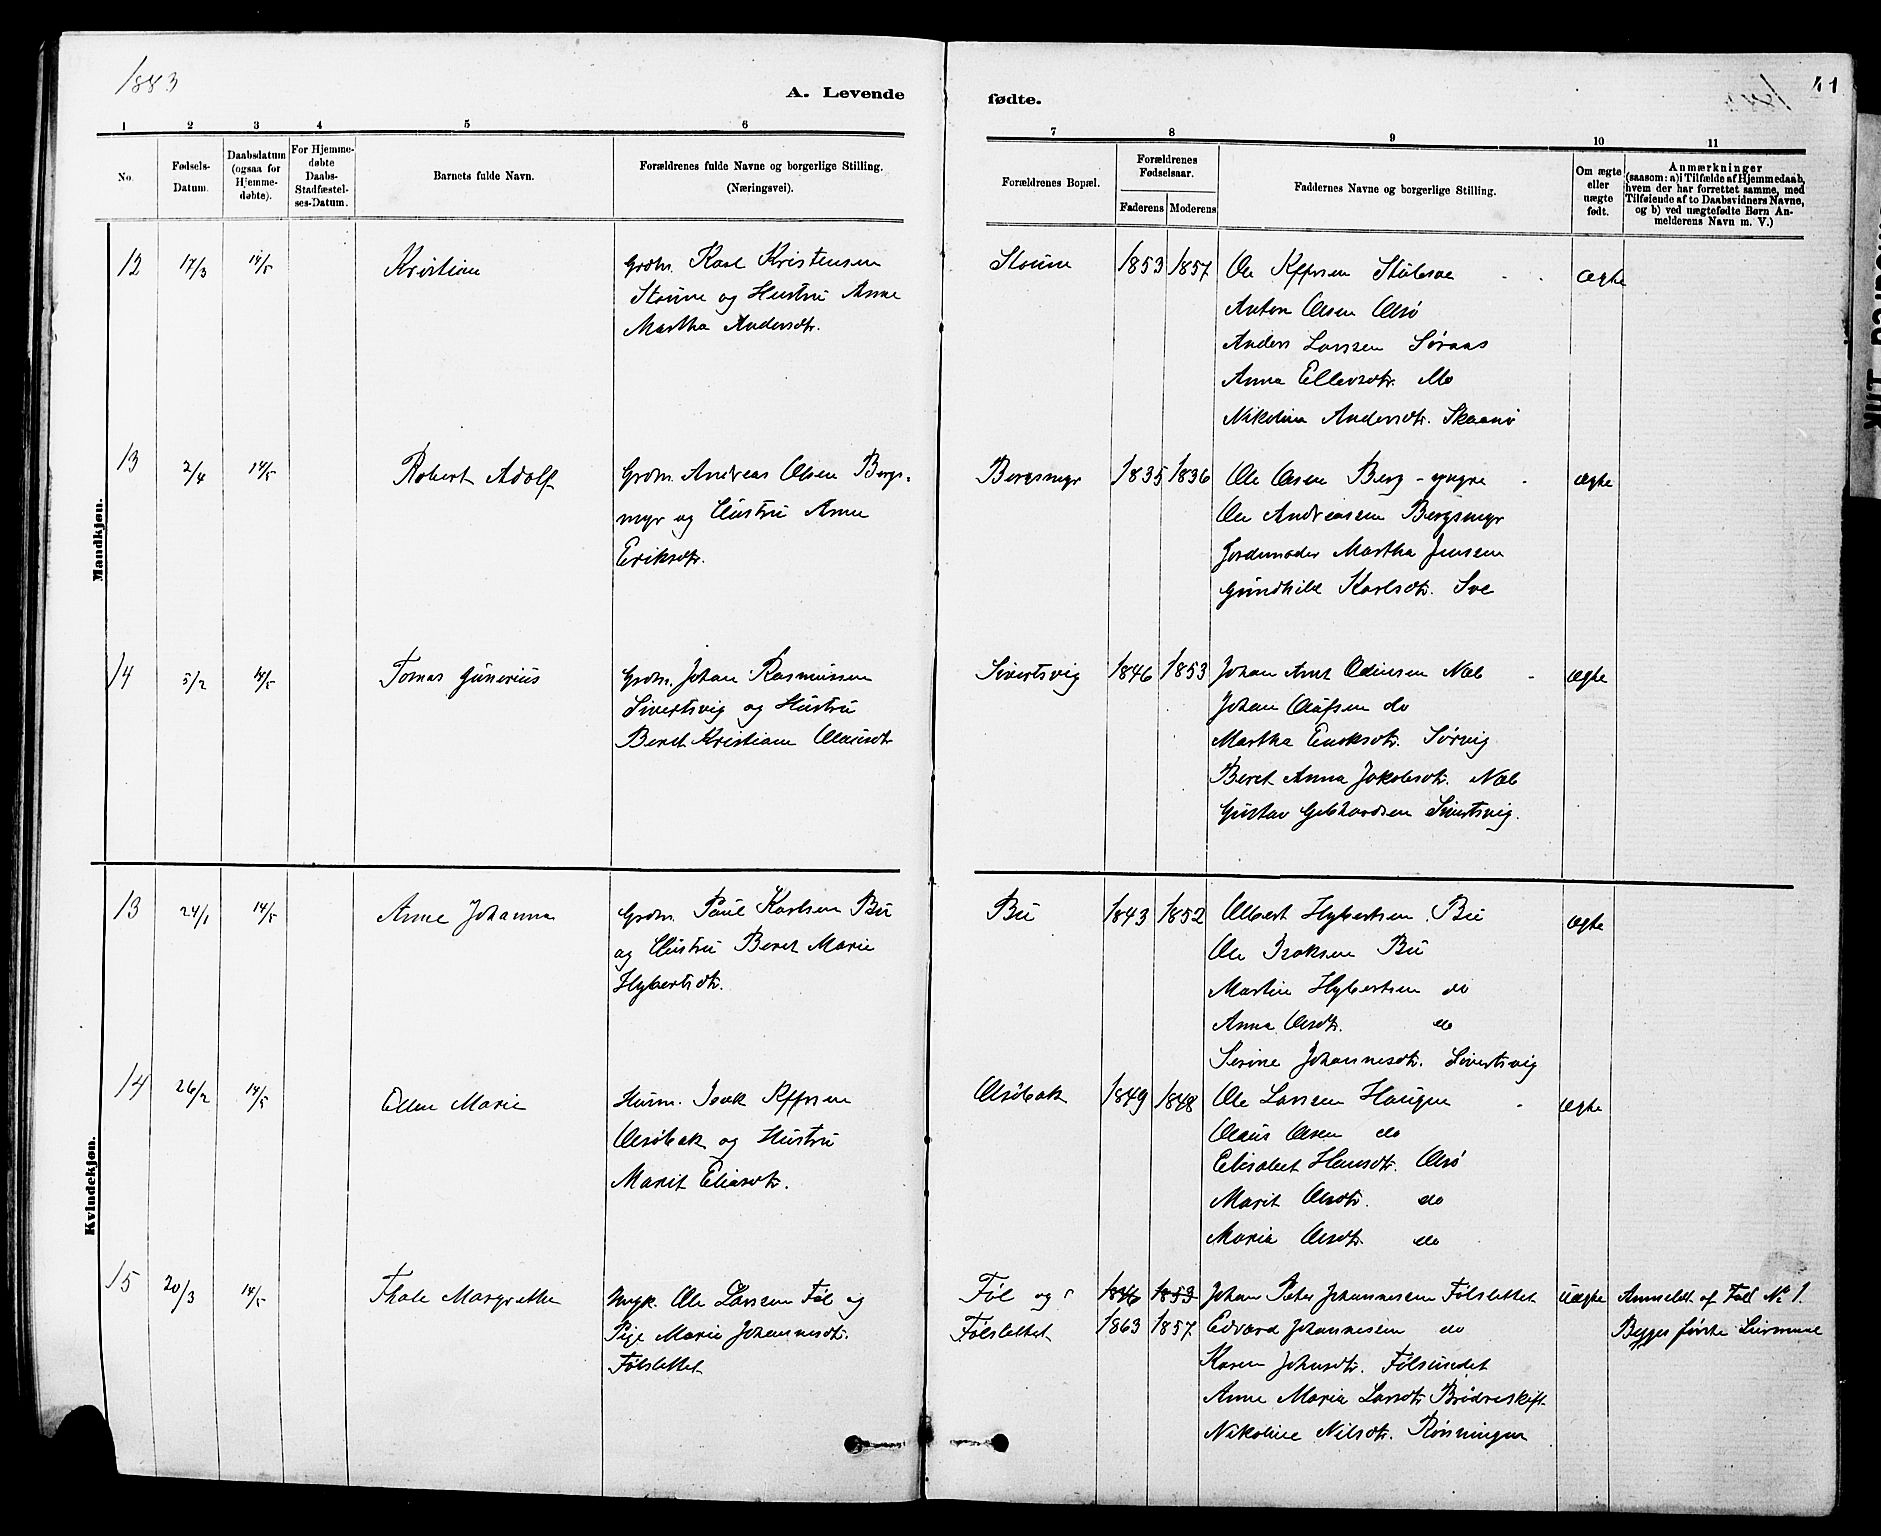 1883
A. Levende
fødte.
41
1 2 3 4 5 6 7 8 9 10 11
No.
Fødsels-Datum.
Daabsdatum (ogsaa for Hjemmedøbte).
For Hjemmedøbte Daabs-Stadfæstelses-Datum.
Barnets fulde Navn.
Forældrenes fulde Navne og borgerlige Stilling. (Næringsvei).
Forældrenes Bopæl.
Forældrenes Fødselsaar.
Faderens Moderens
Faddernes Navne og borgerlige Stilling.
Om ægte eller uægte født.
Anmærkninger
(saasom: a) i Tilfælde af Hjemmedaab, hvem der har forrettet samme, med Tilføiende af to Daabsvidners Navne, og b) ved uægtefødte Børn Anmelderens Navn m. V.)
Mandkjøn.
12 17/3 14/5 Kristian
Grdm. Karl Kristensen
Stoune og Hustru Anne
Martha Andersdtr.
Stoune 1853 1857
Ole Stubsøe
Anton Olsen Olsø
Anders Larssen Søraas
Anna Ellevsdtr. Mo
Nikolina Andersdtr. Skaanø
ægte
13 2/4 14/5 Robert Adolf
Grdm. Andreas Olsen Bergs-
myr og Hustru Anne
Eriksdtr.
Bergsmyr 1835 1836
Ole Olsen Berg - yngre
Ole Andreassen Bergsmyr
Jordemoder Martha Jensen
Gundhild Karlsdtr. Sve
ægte
14 5/2 14/5 Tomas Gunerius
Grdm. Johan Rasmussen
Sivertsvig og Hustru
Beret Kristiane Olausdtr
Sivertsvig 1846 1853
Johan Arnt Odinsen Næb
Johan Olafsen do
Martha Eriksdtr. Sørvig
Beret Anna Jakobsdtr. Næb
Gustav Gebhardsen Sivertsvig.
ægte
Kvindekjøn.
13 24/1 14/5 Anne Johanna
Grdm. Paul Karlsen Bu
og Hustru Beret Marie
Hybertsdtr.
Bu 1843 1852
Albert Hybertsen Bu
Ole Isaksen Bu
Martin Hybertsen do
Anna Olsdtr. do
Serine Johannesdtr. Sivertsvig
ægte
14 26/2 14/5 Ellen Marie
Husm. Isak
Olsøbak og Hustru
Marit Eliasdtr.
Olsøbak 1849 1848
Ole Larssen Haugen
Olaus Olsen do
Elisabet Hansdtr. Olsø
Marit Olsdtr. do
Maria Olsdtr. do
ægte
15 20/3 14/5 Thale Margrethe
Ungk. Ole Larssen Føl og
Pige Marie Johannesdtr.
Følslettet
Føl og Følslettet 1846 1853
1863 1857
Johan Peter Johannesen Følslettet
Edvard Johannesen do
Karen Johnsdtr. Følsundet
Anne Maria Larsdtr Brødreskift
Nikoline Nilsdtr. Rønningen
uægte
Anmeldt af Fadd No 1.
Begges første Leiermaal